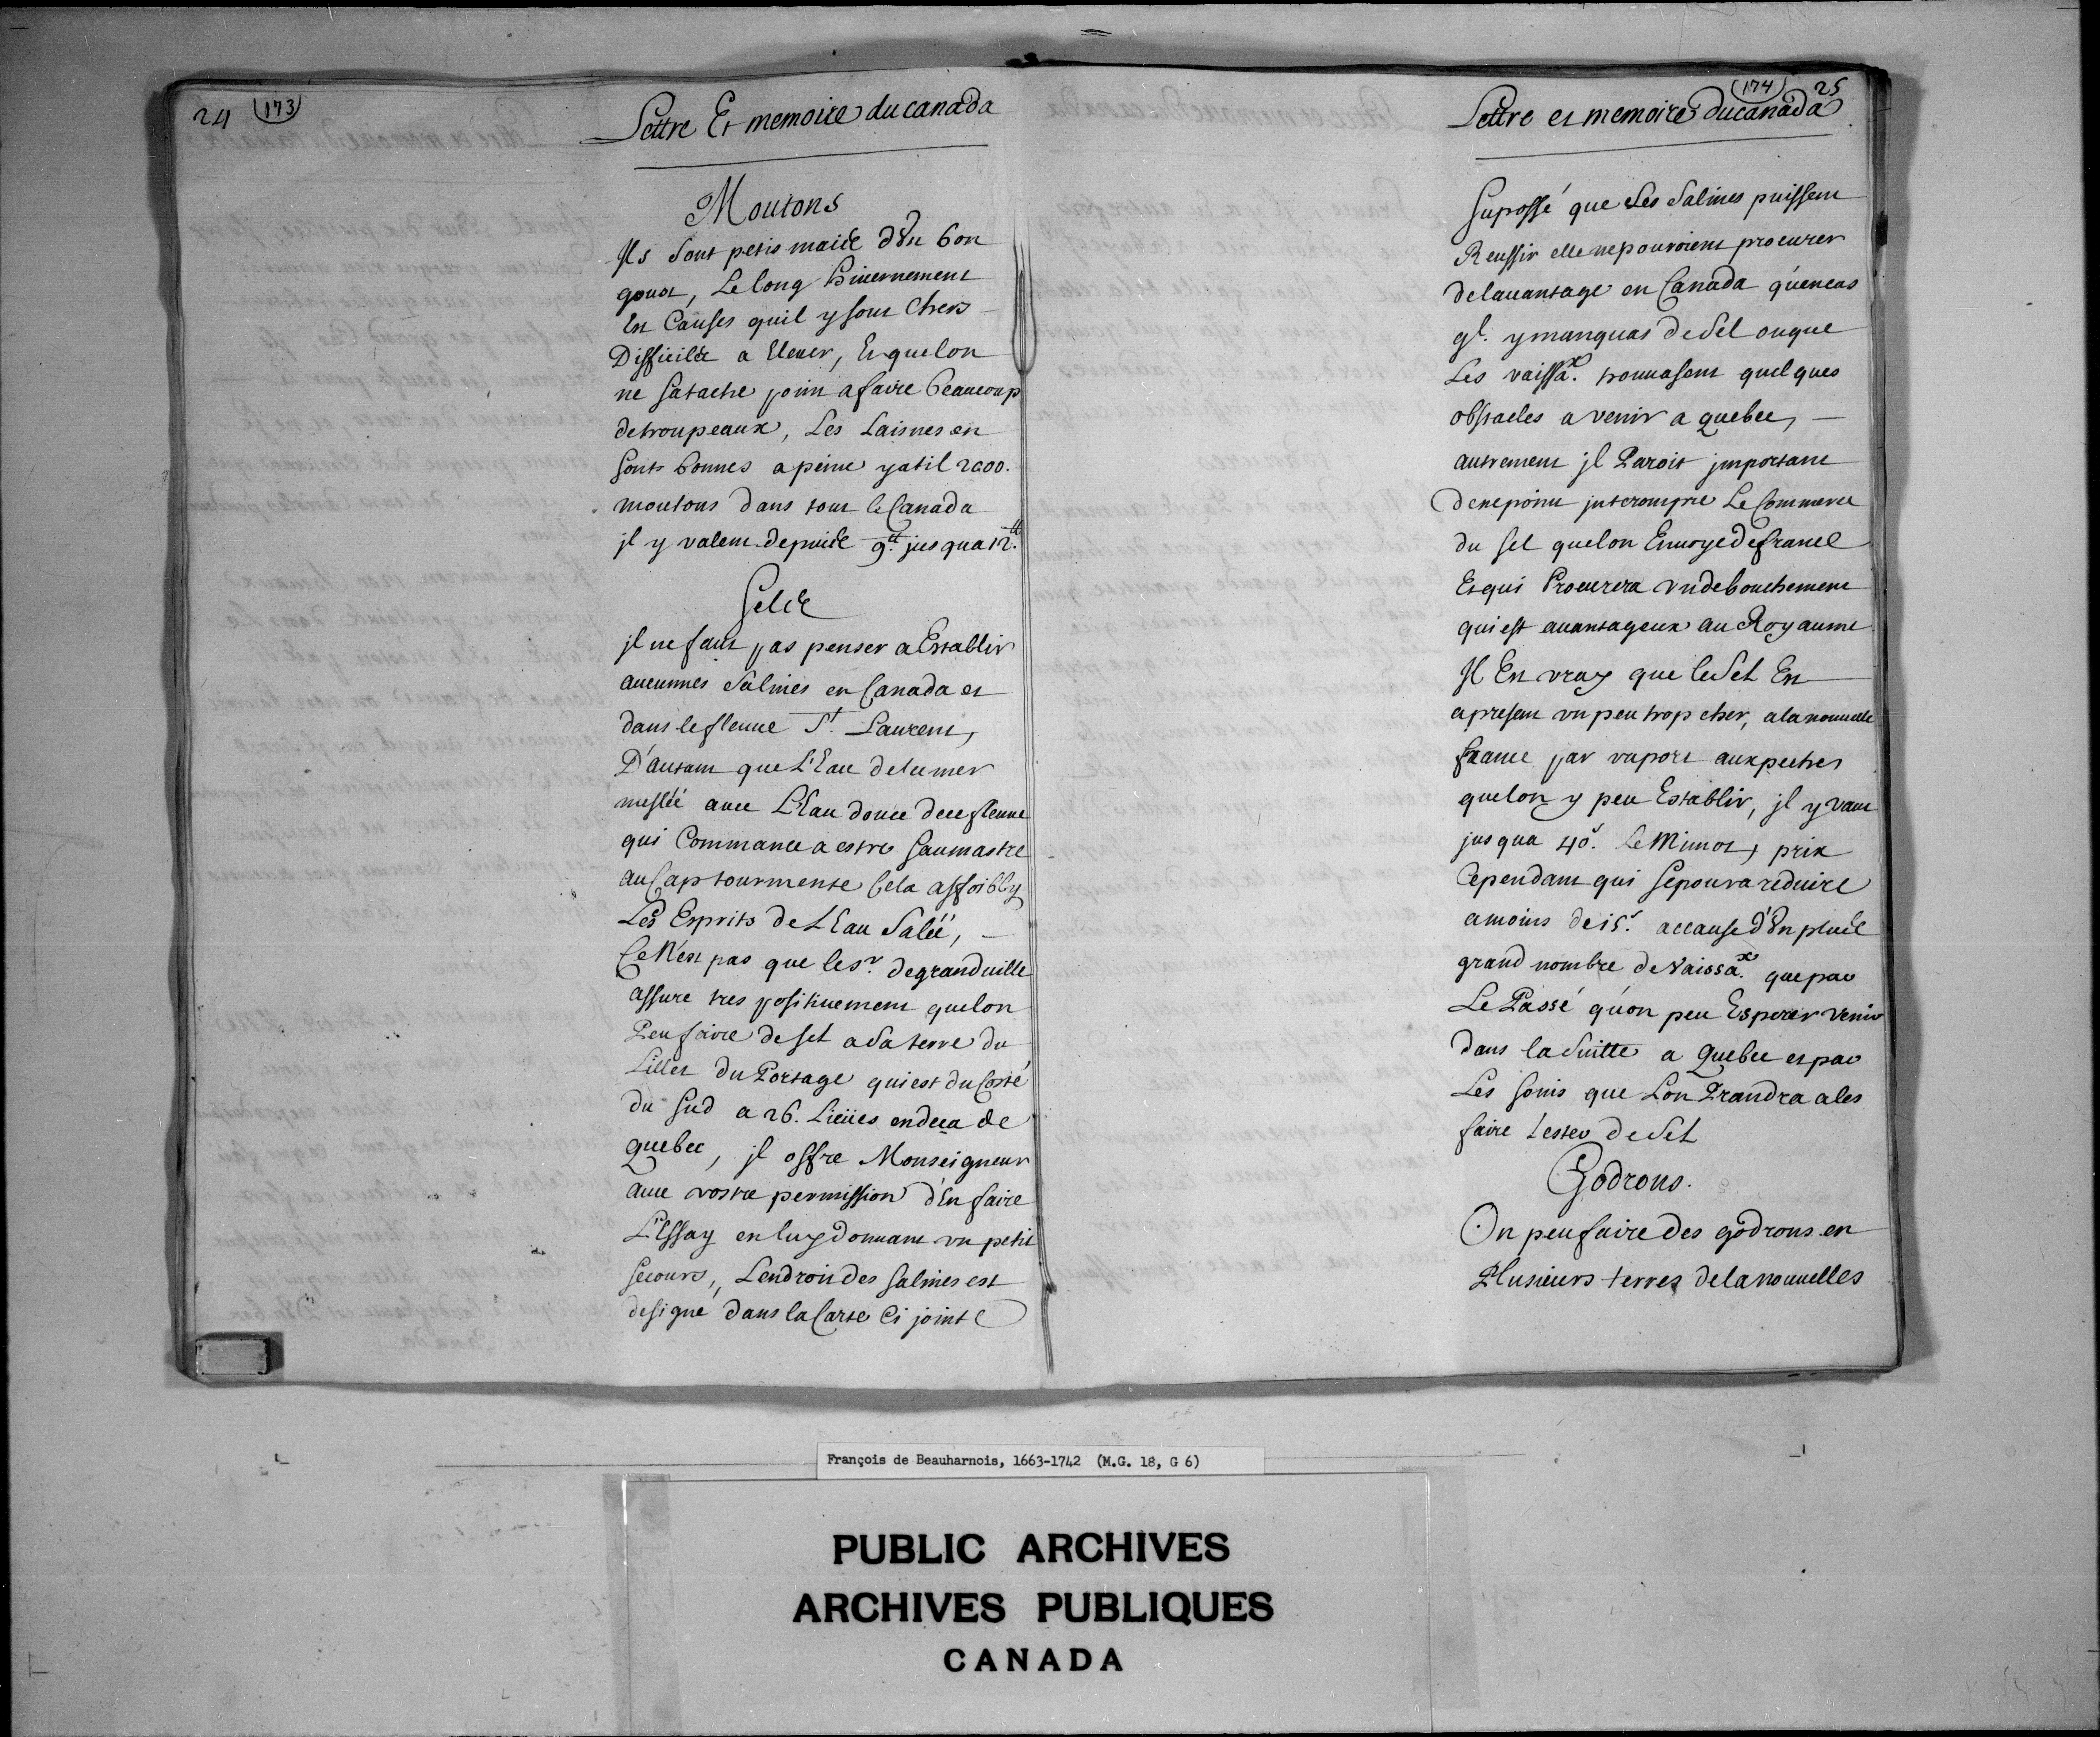 24 (173)
Lettre Et memoire du canada
Moutons
Ils sont petis maiis d'Un bon
goust, Le long hiuernement
Est Causes quil y sont Chers
Difficilles a Eleuer, Et quelon
ne satache point afaire beaucoup
detroupeaux, Les Laisnes en
sont bonnes apeine yatil 2000.
moutons dans tout le Canada
jl y valent depuis 9.tt jusqua 12.tt
Selee
jl ne faut pas penser a Establir
aucunnes salines en Canada et
dans lefleuue St. Laurent,
D'autant que L'Eau delamer
meslée auec L'Eau douce dece fleuue
qui Commance a estre saumastre
au Cap tourmente Cela affoibly
Les Esprits de L Eau salée,
Ce N'est pas que le sr. degranduille
assure tres positiuement quelon
Peu faire de sel a sa terre du
Lillet du Portage qui est du Costé
du sud a 26. Lieües endeca de
quebec, jl offre Monseigneur
auec vostre permission d'En faire
L'Essay en luy donnant vn petit
secours, Lendroit des salines est
designé dans la Carte Ci jointe
(174) 25
Lettre et memoire du canada
Suposé que Les salines puissent
Reussir elle nepouroient procurer
delauantage en Canada qu'encas
ql. y manquas de sel ouque
Les vaissax. trouuasent quelques
obstacles a venir a quebec,
autrement jl Paroit jmportant
denepoint jnterompre Le Commerce
du sel quelon Enuoye defrance
Et qui Procurera vn debouchement
qui est auantageux au Royaume
Il Est vray que le sel Est
apresent vn peu trop cher, alanouuelle
france par raport auxpeches
quelon y peu Establir, jl y vaut
jusqua 40s. Le Minot, prix
Cependant qui sepoura reduire
amoins de 15s. accause d'Un plus
grand nombre de Vaissax. quepar
Le Passé qu'on peu Esperer venir
dans la suitte a Quebec et par
Les soins que Lon Prandra ales
faire lester de sel
Godrons.
On peu faire des godrons en
Plusieurs terres delanouuelles
François de Beauharnois, 1663-1742 (M.G. 18, G 6)
PUBLIC ARCHIVES
ARCHIVES PUBLIQUES
CANADA